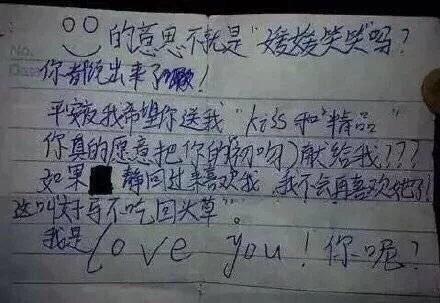 No.
的意思不就是“媛媛笑笑”吗?
你都说出来了!
平安夜我希望你送我“kiss和“精品”
你真的愿意把你的(初吻)献给我???
如果 静回过来喜欢我,我不会再喜欢她了!
这叫好马不吃回头草”。
我是Love you!你呢?